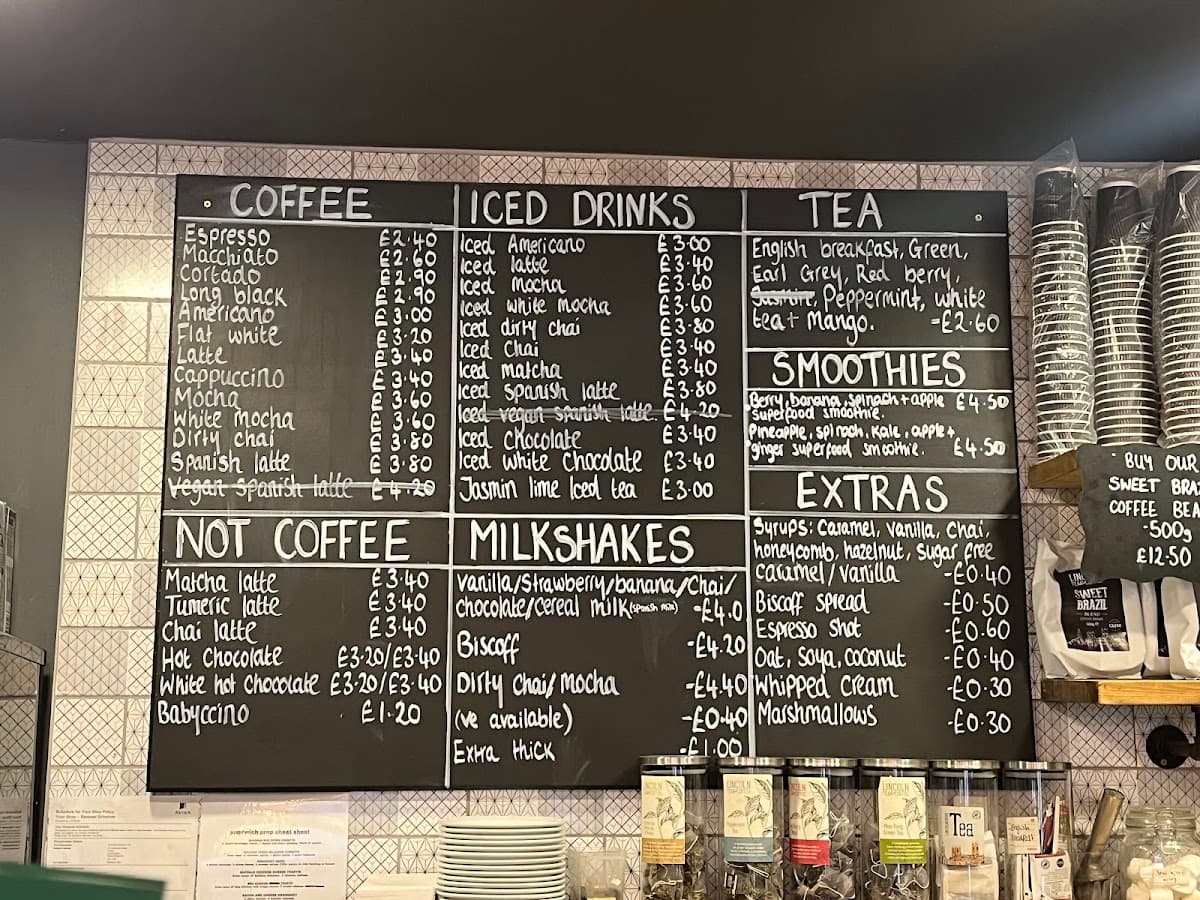 COFFEE
Espresso £2.40
Macchiato £2.60
Cortado £2.90
Long black £2.90
Americano £3.00
Flat white £3.20
Latte £3.40
Cappuccino £3.40
Mocha £3.60
White mocha £3.60
Dirty chai £3.80
Spanish latte £3.80
Vegan Spanish latte £4.20
NOT COFFEE
Matcha latte £3.40
Tumeric latte £3.40
Chai latte £3.40
Hot Chocolate £3.20/£3.40
White hot chocolate £3.20/£3.40
Babyccino £1.20
ICED DRINKS
Iced Americano £3.00
Iced latte £3.40
Iced mocha £3.60
Iced white mocha £3.60
Iced dirty chai £3.80
Iced Chai £3.40
Iced matcha £3.40
Iced Spanish latte £3.80
Iced vegan spanish latte £4.20
Iced chocolate £3.40
Iced white chocolate £3.40
Jasmin lime Iced tea £3.00
MILKSHAKES
Vanilla/Strawberry/banana/Chai/
chocolate/cereal milk -£4.0
Biscoff -£4.20
Dirty Chai/mocha -£4.40
(ve available) -£0.40
Extra thick -£1.00
TEA
English breakfast, Green,
Earl Grey, Red berry,
Jasmine, Peppermint, white
tea + Mango. -£2.60
SMOOTHIES
Berry, banana, spinach + apple £4.50
superfood smoothie.
Pineapple, spinach, kale, apple +
ginger superfood smoothie. £4.50
EXTRAS
Syrups: Caramel, Vanilla, Chai,
honeycomb, hazelnut, sugar free
caramel/vanilla -£0.40
Biscoff spread -£0.50
Espresso shot -£0.60
Oat, Soya, coconut -£0.40
Whipped cream -£0.30
Marshmallows -£0.30
BUY OUR
SWEET BRAZ
COFFEE BEA
-500g
£12.50
SWEET
BRAZIL
sandwich prep cheat sheet
LINCOLN
Tea